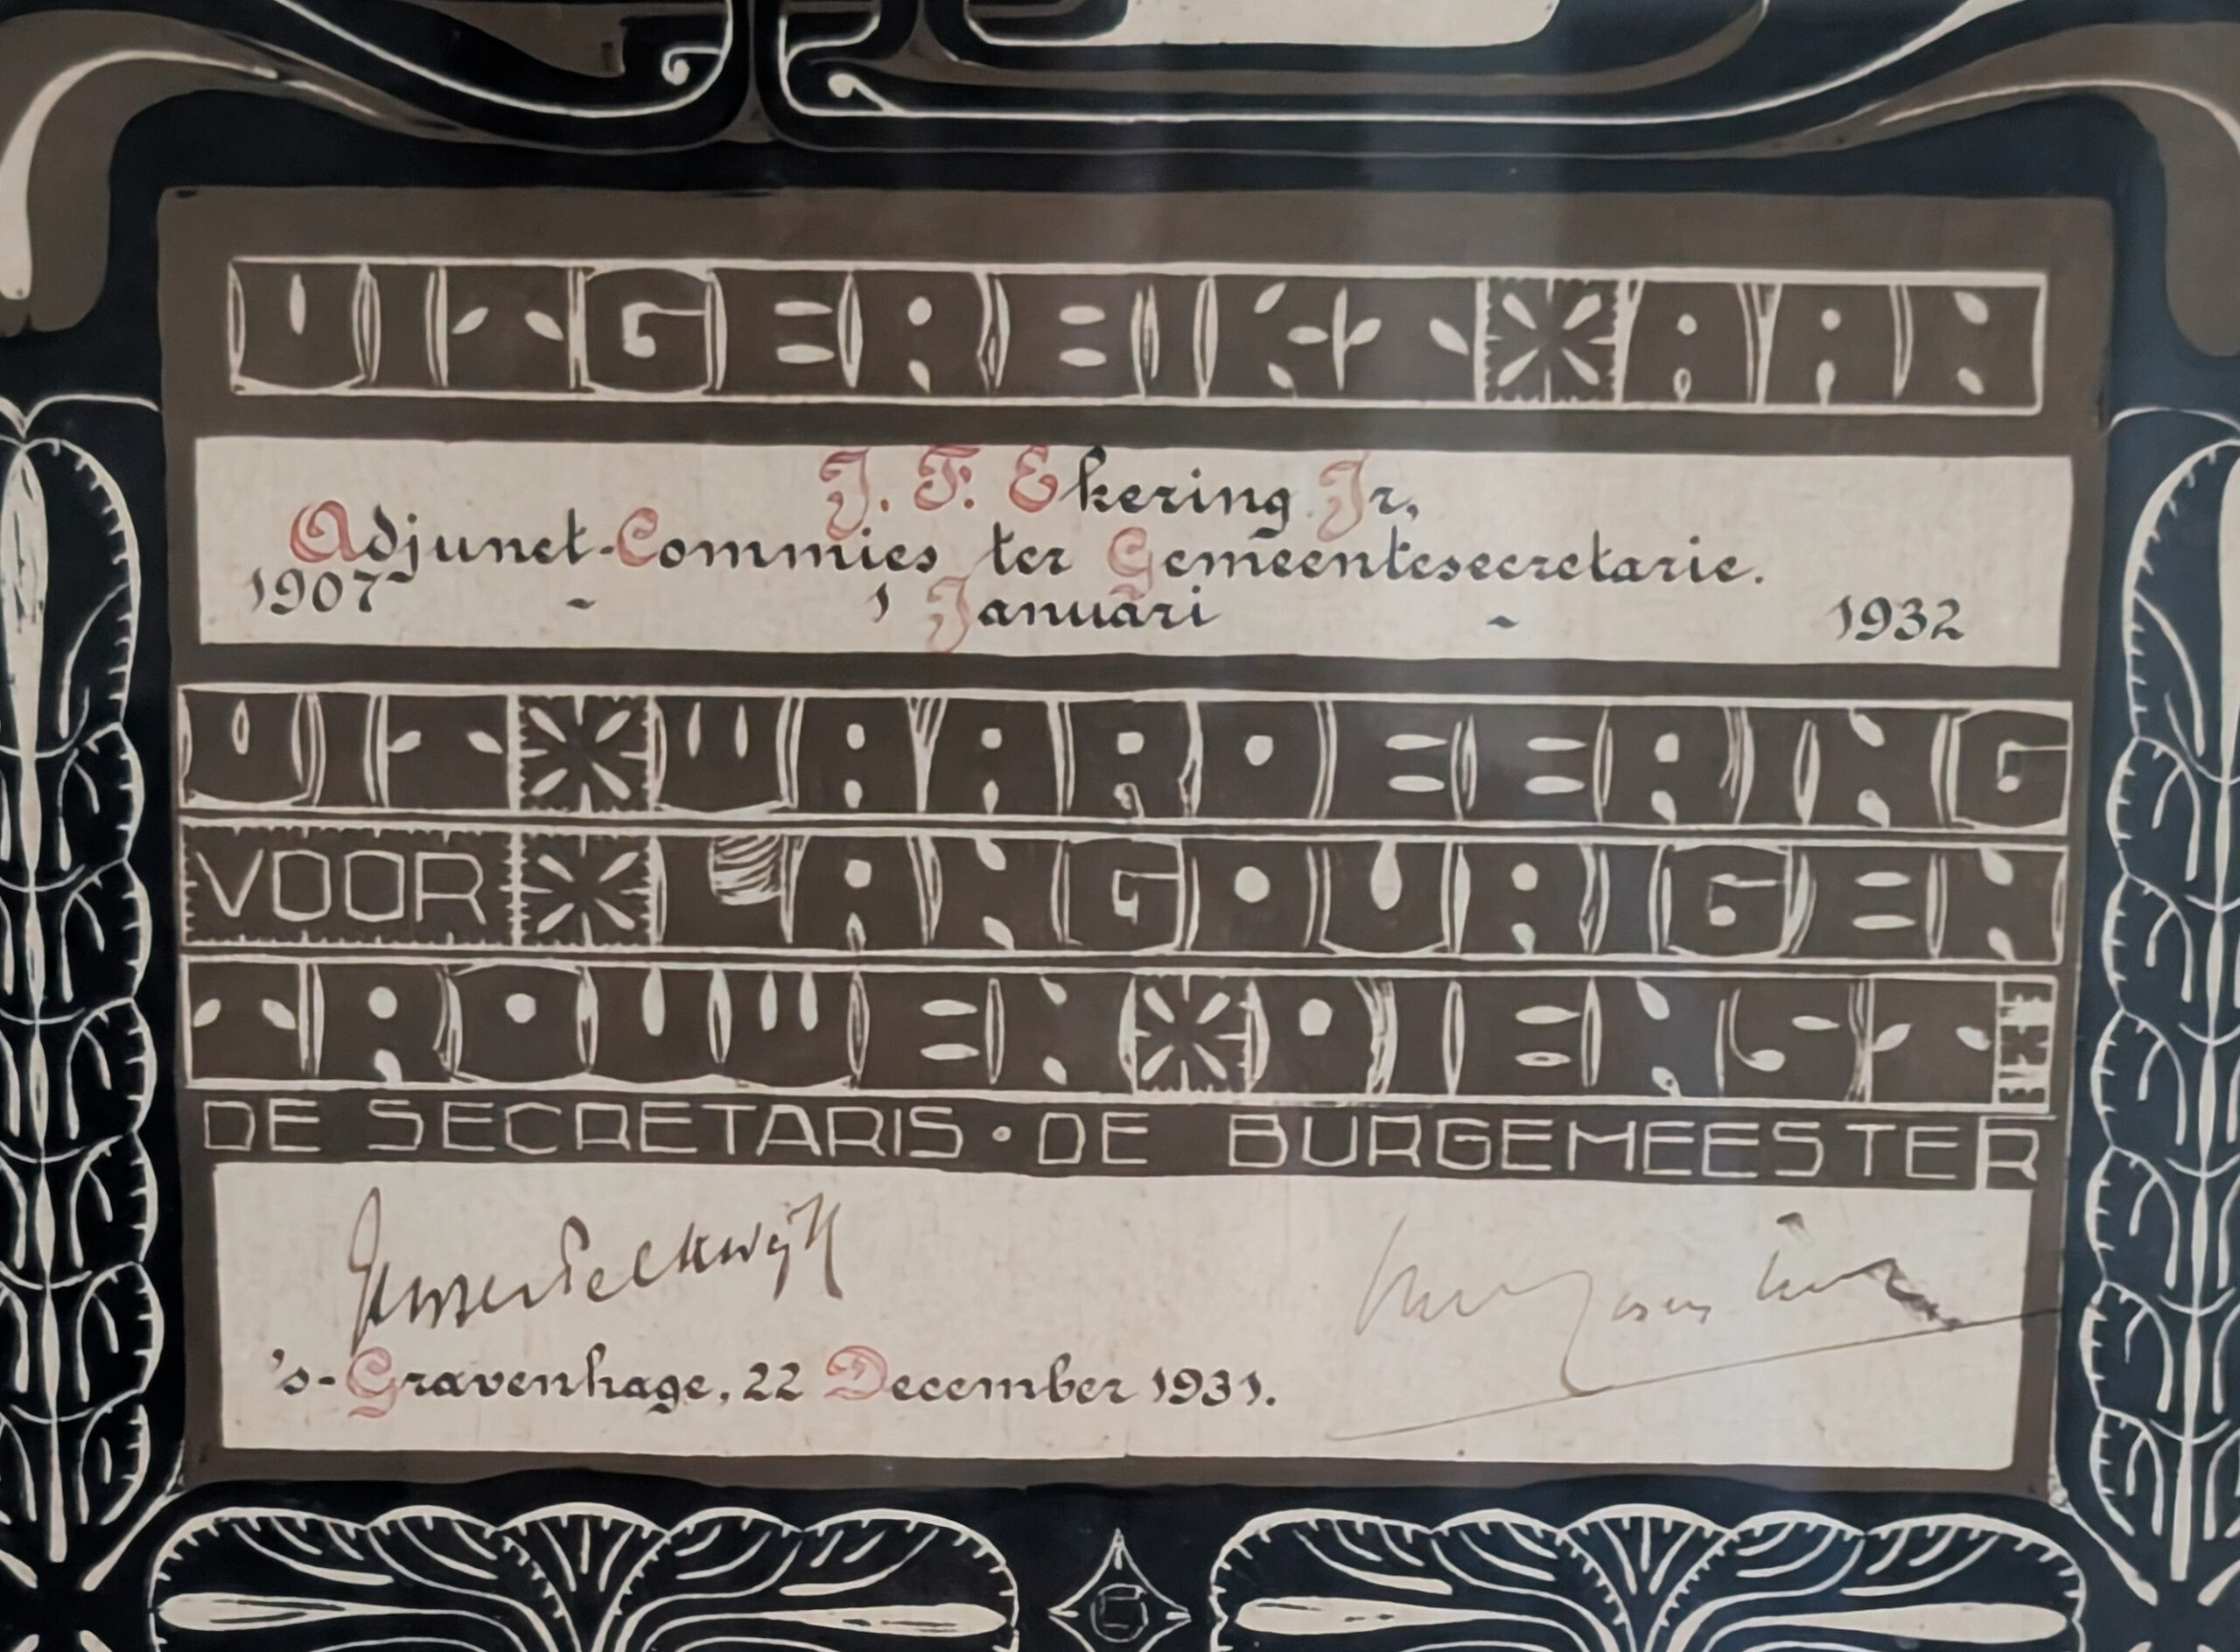 UITGEREIKT AAN
J. F. Ekering Jr,
Adjunct-Commies ter Gemeentesecretarie.
1907 - 1 Januari - 1932
UIT WAARDEERING
VOOR LANGDURIGEN
TROUWEN DIENST
DE SECRETARIS • DE BURGEMEESTER
's-Gravenhage, 22 December 1931.